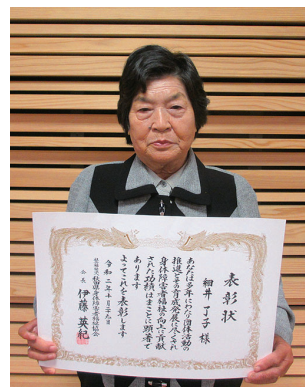 表彰状
細井丁子様
あなたは多年にわたり団体活動の
推進とその育成発展に尽くされ
身体障害者福祉の向上に貢献
された功績はまことに顕著で
あります
よってこれを表彰します
令和二年十月二十九日
秋田県身体障害者福祉協会
会長 伊藤英紀